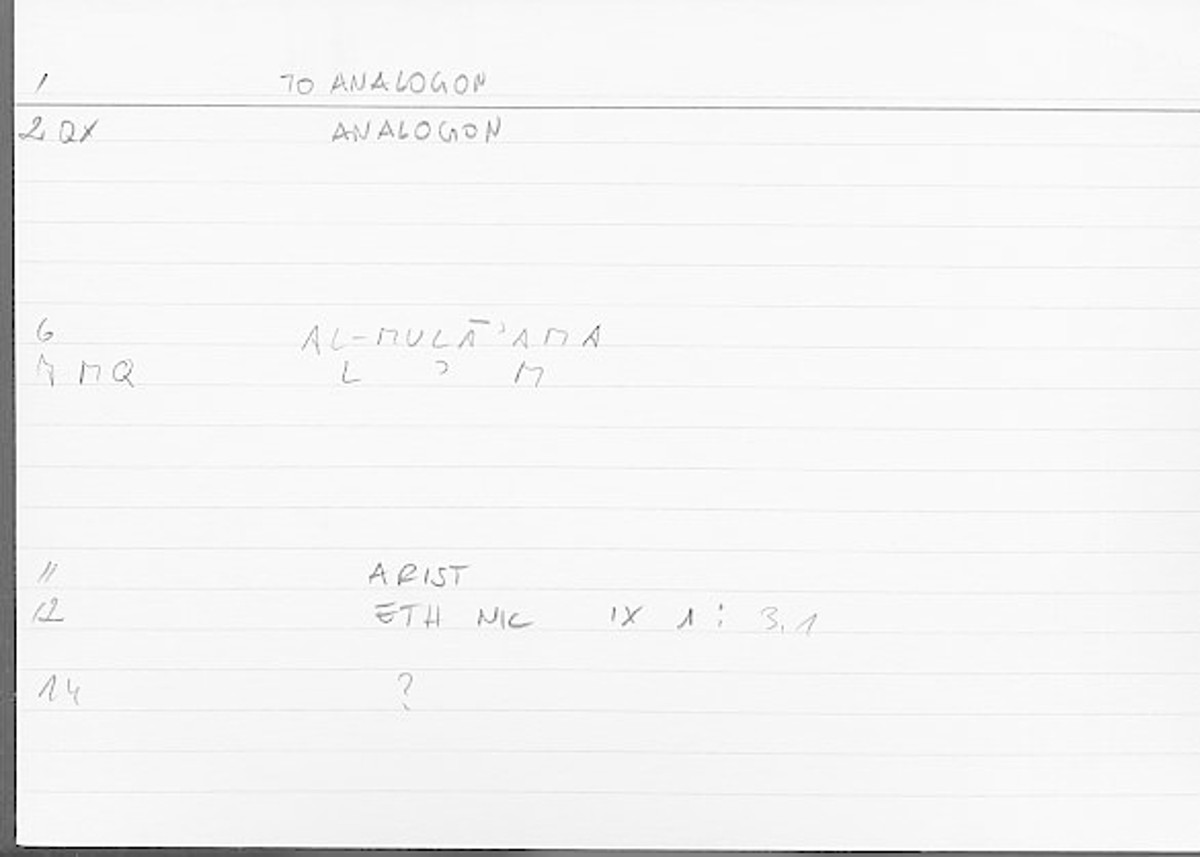 1 TO ANALOGON
2 QX ANALOGON
6 AL-MULĀʾAMA
7 MQ L ʾ M
11 ARIST
12 ETH NIC IX 1 : 3.1
14 ?